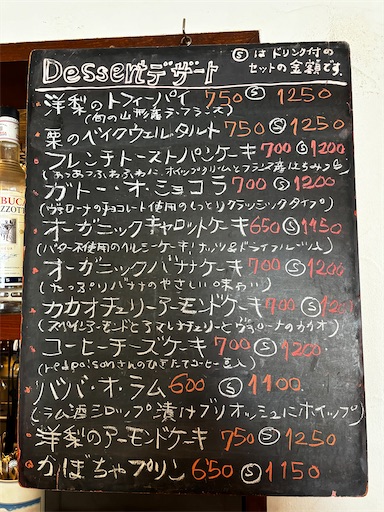 Dessert デザート
Ⓢ は ドリンク付の
セットの金額です。
洋梨のトフィーパイ 750 Ⓢ 1250
(旬の山形産ラ・フランス)
栗のベイクウェルタルト 750 Ⓢ 1250
フレンチトーストパンケーキ 700 Ⓢ 1200
ガトー・オ・ショコラ 700 Ⓢ 1200
(ヴァローナのチョコレート使用のしっとりクラシックタイプ)
オーガニックキャロットケーキ 650 Ⓢ 1150
(バター不使用のヘルシーケーキ! ナッツ&ドライフルーツ入)
オーガニックバナナケーキ 700 Ⓢ 1200
(たっぷりバナナのやさしい味わい)
カカオチェリーアーモンドケーキ 700 Ⓢ 1200
(スペインアーモンドとアマレナチェリーとヴァローナのカカオ)
コーヒーチーズケーキ 700 Ⓢ 1200
さんのひきたてコーヒー豆入)
ババ・オ・ラム 600 Ⓢ 1100
(ラム酒シロップ漬けブリオッシュにホイップ)
洋梨のアーモンドケーキ 750 Ⓢ 1250
かぼちゃプリン 650 Ⓢ 1150